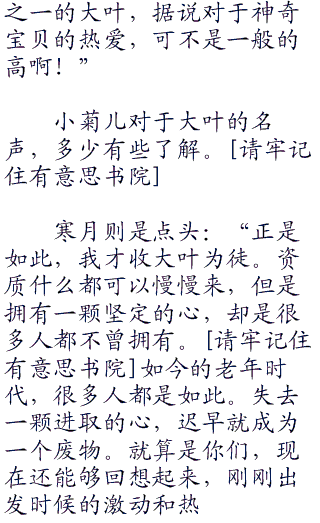 之一的大叶，据说对于神奇
宝贝的热爱，可不是一般的
高啊！”
小菊儿对于大叶的名
声，多少有些了解。[请牢记
住有意思书院]
寒月则是点头：“正是
如此，我才收大叶为徒。资
质什么都可以慢慢来，但是
拥有一颗坚定的心，却是很
多人都不曾拥有。[请牢记住
有意思书院]如今的老年时
代，很多人都是如此。失去
一颗进取的心，迟早就成为
一个废物。就算是你们，现
在还能够回想起来，刚刚出
发时候的激动和热